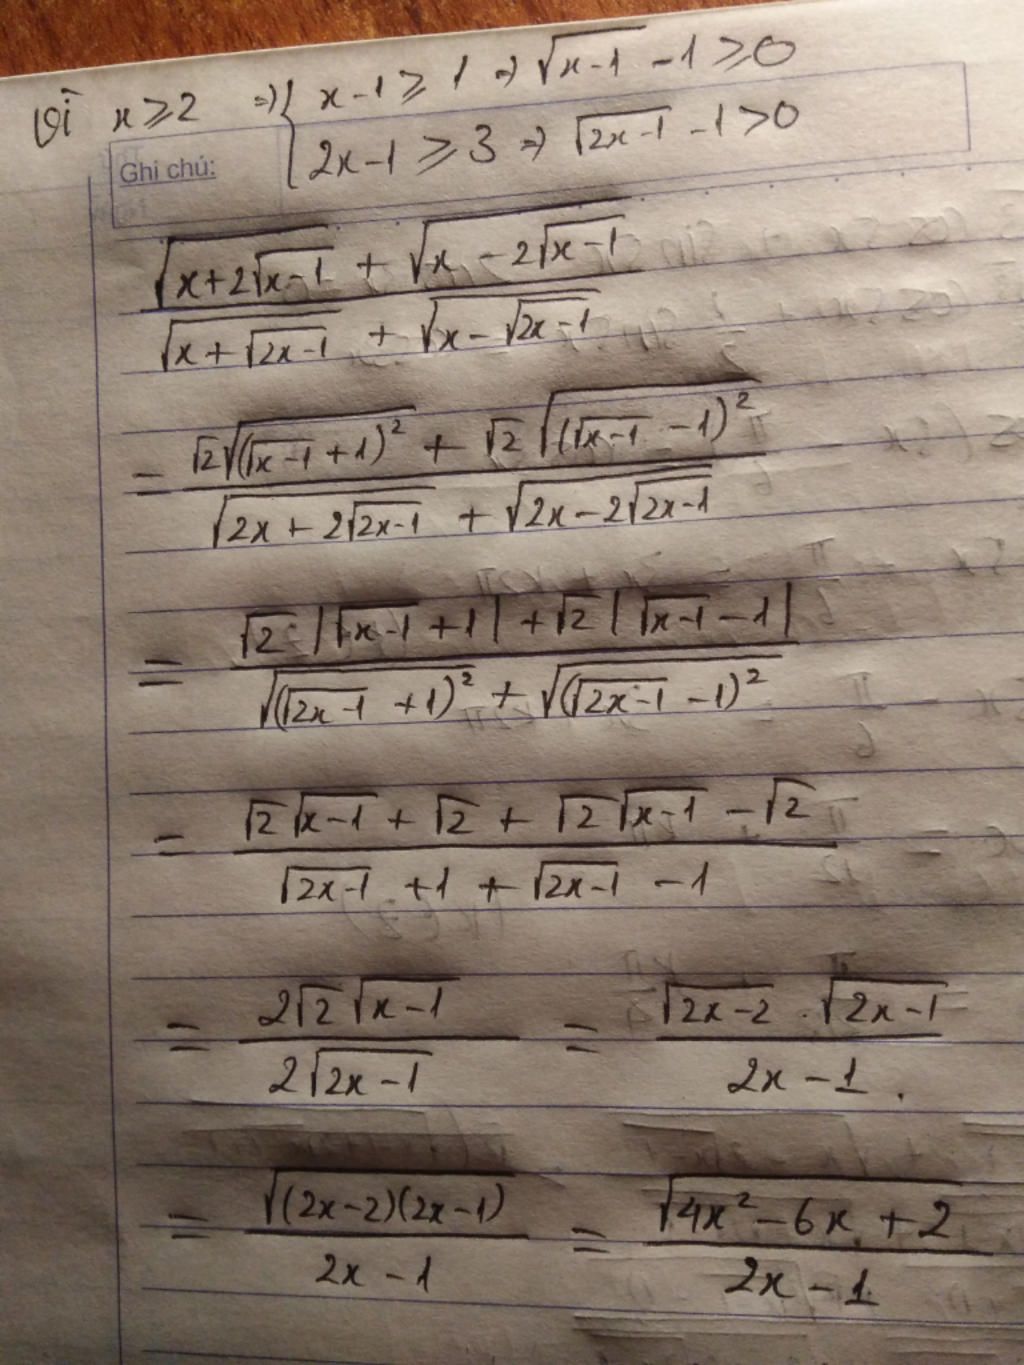 Vì x ≥ 2 ⇒ { x - 1 ≥ 1 ⇒ √(x-1) - 1 ≥ 0
2x - 1 ≥ 3 ⇒ √(2x-1) - 1 > 0
Ghi chú:
(√(x + 2√(x-1)) + √(x - 2√(x-1))) / (√(x + √(2x-1)) + √(x - √(2x-1)))
= (√2 √((√(x-1) + 1)²) + √2 √((√(x-1) - 1)²)) / (√(2x + 2√(2x-1)) + √(2x - 2√(2x-1)))
= (√2 · |√(x-1) + 1| + √2 |√(x-1) - 1|) / (√((√(2x-1) + 1)²) + √((√(2x-1) - 1)²))
= (√2 √(x-1) + √2 + √2 √(x-1) - √2) / (√(2x-1) + 1 + √(2x-1) - 1)
= (2√2 √(x-1)) / (2√(2x-1)) = (√(2x-2) · √(2x-1)) / (2x - 1).
= √((2x-2)(2x-1)) / (2x - 1) = √(4x² - 6x + 2) / (2x - 1)